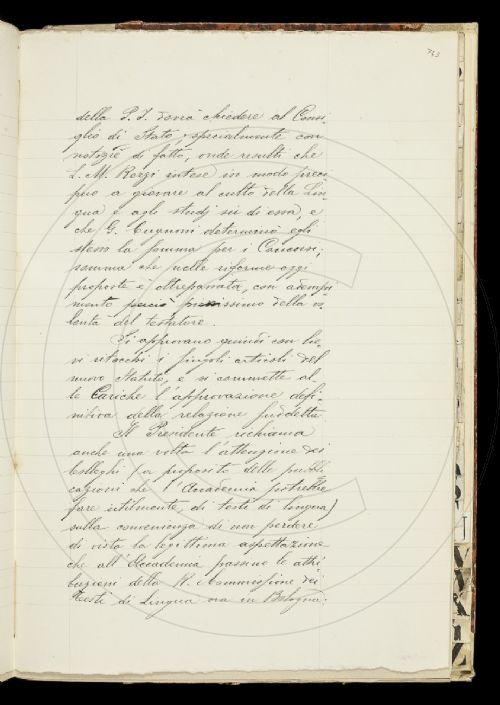 743
della P. I. dovrà chiedere al Consi-
glio di Stato, specialmente con
notizie di fatto, onde resulti che
L. M. Rezzi intese in modo preci-
puo a giovare al culto della Lin-
gua e agli studj su di essa, e
che G. Cugnoni determinò egli
stesso la somma per i Concorsi;
somma che nelle riforme oggi
proposte è oltrepassata, con adempi-
mento perciò pienissimo della vo-
lontà del testatore.
Si approvano quindi con lie-
vi ritocchi i singoli articoli del
nuovo Statuto, e si commette al-
le Cariche l'approvazione defi-
nitiva della relazione suddetta.
Il Presidente richiama
anche una volta l'attenzione dei
Colleghi (a proposito delle pubbli-
cazioni che l'Accademia potrebbe
fare utilmente, di testi di lingua)
sulla convenienza di non perdere
di vista la legittima aspettazione
che all'Accademia passino le attri-
buzioni della R. Commissione dei
Testi di Lingua ora in Bologna.